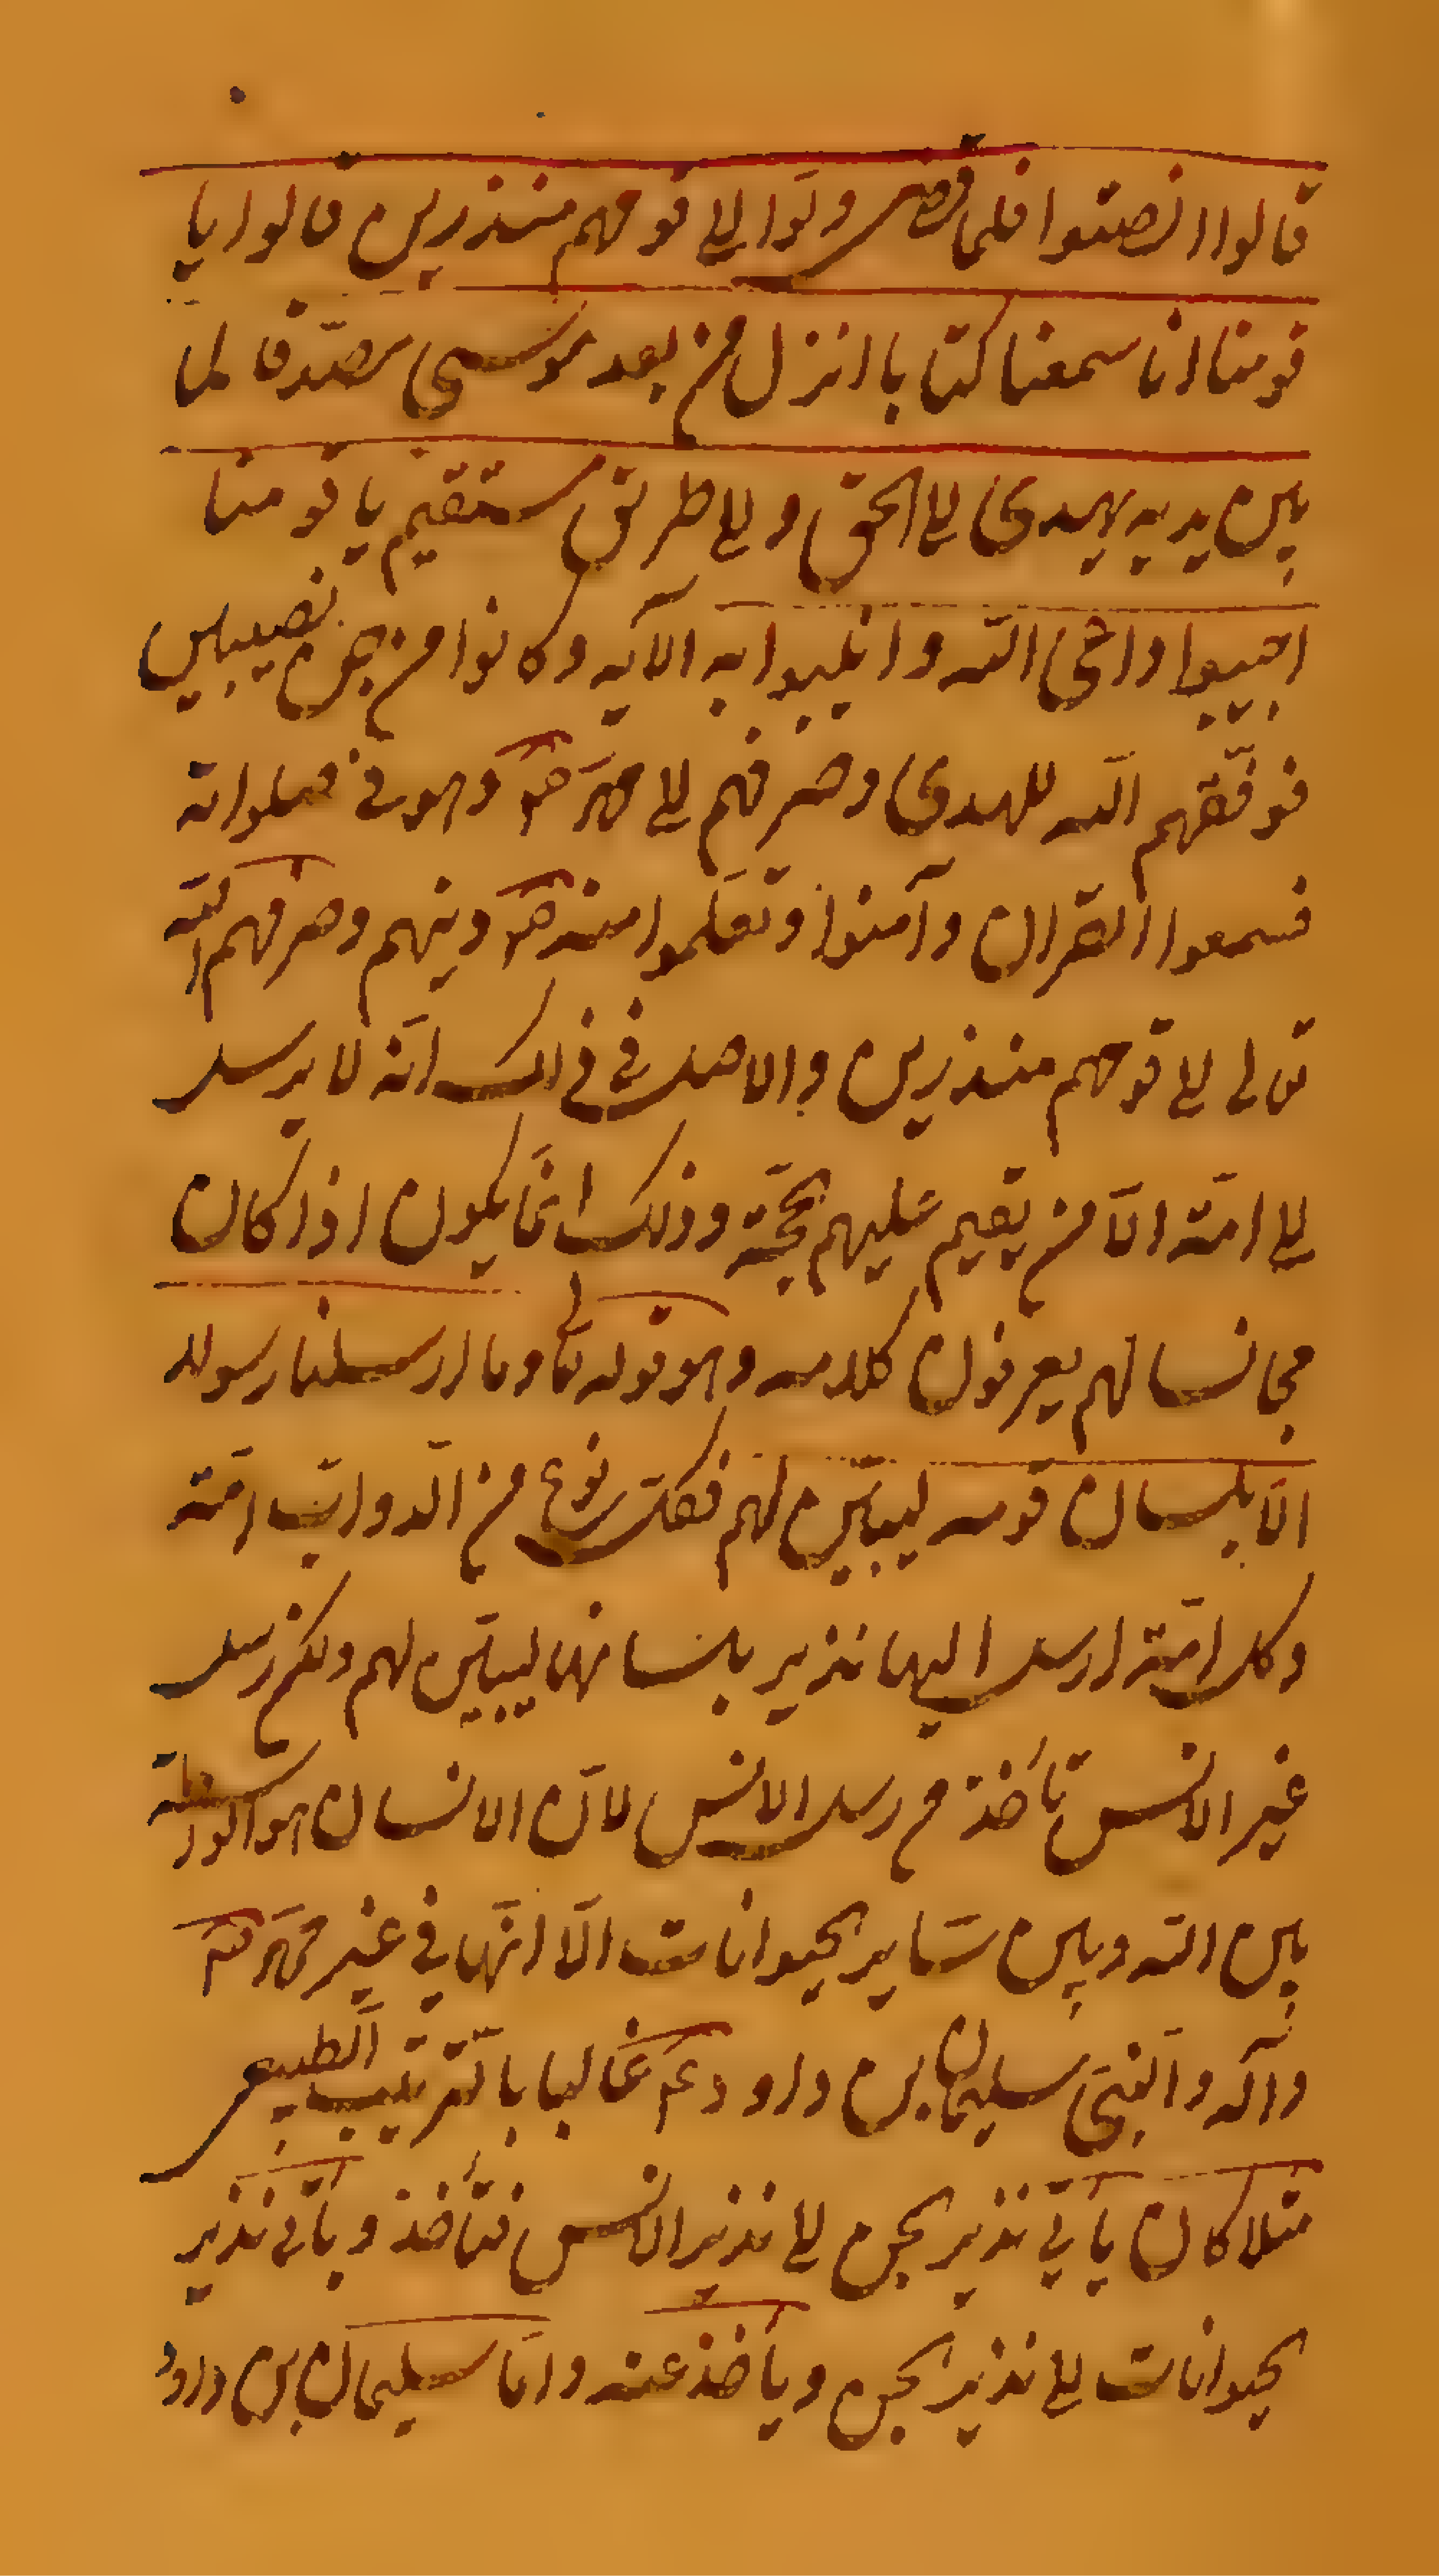 قالوا انصتوا فلما قضى ولّوا الى قومهم منذرين قالوا يا
قومنا انا سمعنا كتابا انزل من بعد موسى مصدّقا لما
بين يديه يهدى الى الحق والى طريق مستقيم يا قومنا
اجيبوا داعى اللّه وآمنوا به الآيه وكانوا من جن نصيبين
فوفّقهم اللّه للهدى وصرفهم الى محمّد ص وهو فى صلواته
فسمعوا القران وآمنوا وتعلّموا منه ص دينهم وصرفهم اللّه
تعالى الى قومهم منذرين والاصل فى ذلك انّه لا يرسل
الى امّة الّا من يقيم عليهم الحجّة وذلك انّما يكون اذا كان
مجانسا لهم يعرفون كلامه وهو قوله تعالى وما ارسلنا رسولا
الّا بلسان قومه ليبيّن لهم فكل نوع من الدّوابّ امّة
وكل امّة ارسل اليها نذير بلسانها ليبيّن لهم ولكن رسل
غير الانس تأخذ من رسل الانس لانّ الانسان هو الواسطة
بين اللّه وبين ساير الحيوانات الّا انّها فى غير محمّد ص
وآله والنبىّ سليمان بن داود ع غالبا بالتّرتيب الطبيعى
مثلا كان يأتى نذير الجن الى نذير الانس فتأخذ ويأتى نذير
الحيوانات الى نذير الجن ويأخذ عنه وامّا سليمان بن داود